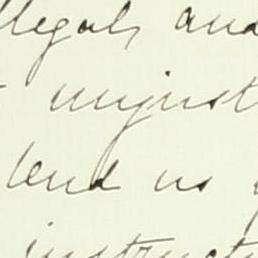 llegal, and
unjust
lend us
instruct